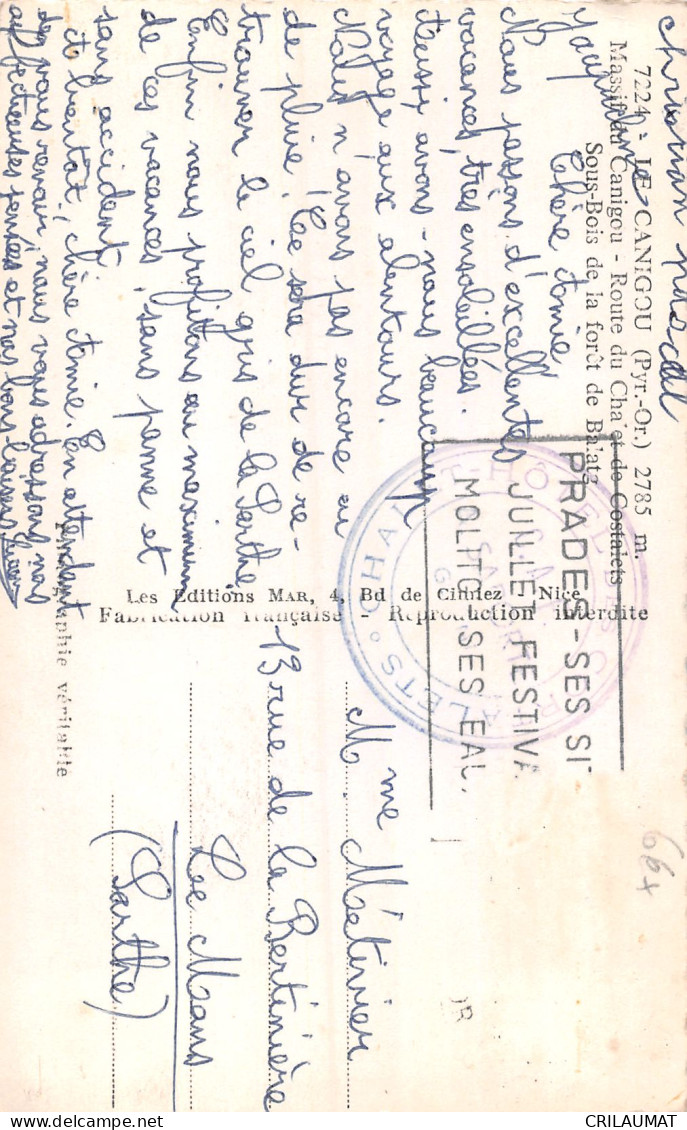 7224 - LE CANIGOU (Pyr.-Or.) 2785 m.
Massif du Canigou - Route du Chalet de Costalets
Sous-Bois de la forêt de Balatg
Christian pascal
Jacqueline
Chère Amie
Nous passons d'excellentes
vacances, très ensoleillées.
Aussi, avons-nous beaucoup
voyagé aux alentours.
Nous n'avons pas encore eu
de pluie. Ce sera dur de re-
trouver le ciel gris de la Sarthe
Enfin nous profitons au maximum
de ces vacances, sans panne et
sans accident.
A bientôt, chère Amie. En attendant
de vous revoir, nous vous adressons nos
affectueuses pensées et nos bons baisers
Les Editions MAR, 4, Bd de Cimiez Nice
Fabrication française - Reproduction interdite
Photographie véritable
CHALET-HÔTEL
PRADES-SES SI
JUILLET FESTIVA
MOLITG-SES EAU
Mme
M. Métivier
13 rue de la Bertinière
Le Mans
(Sarthe)
66x
CRILAUMAT